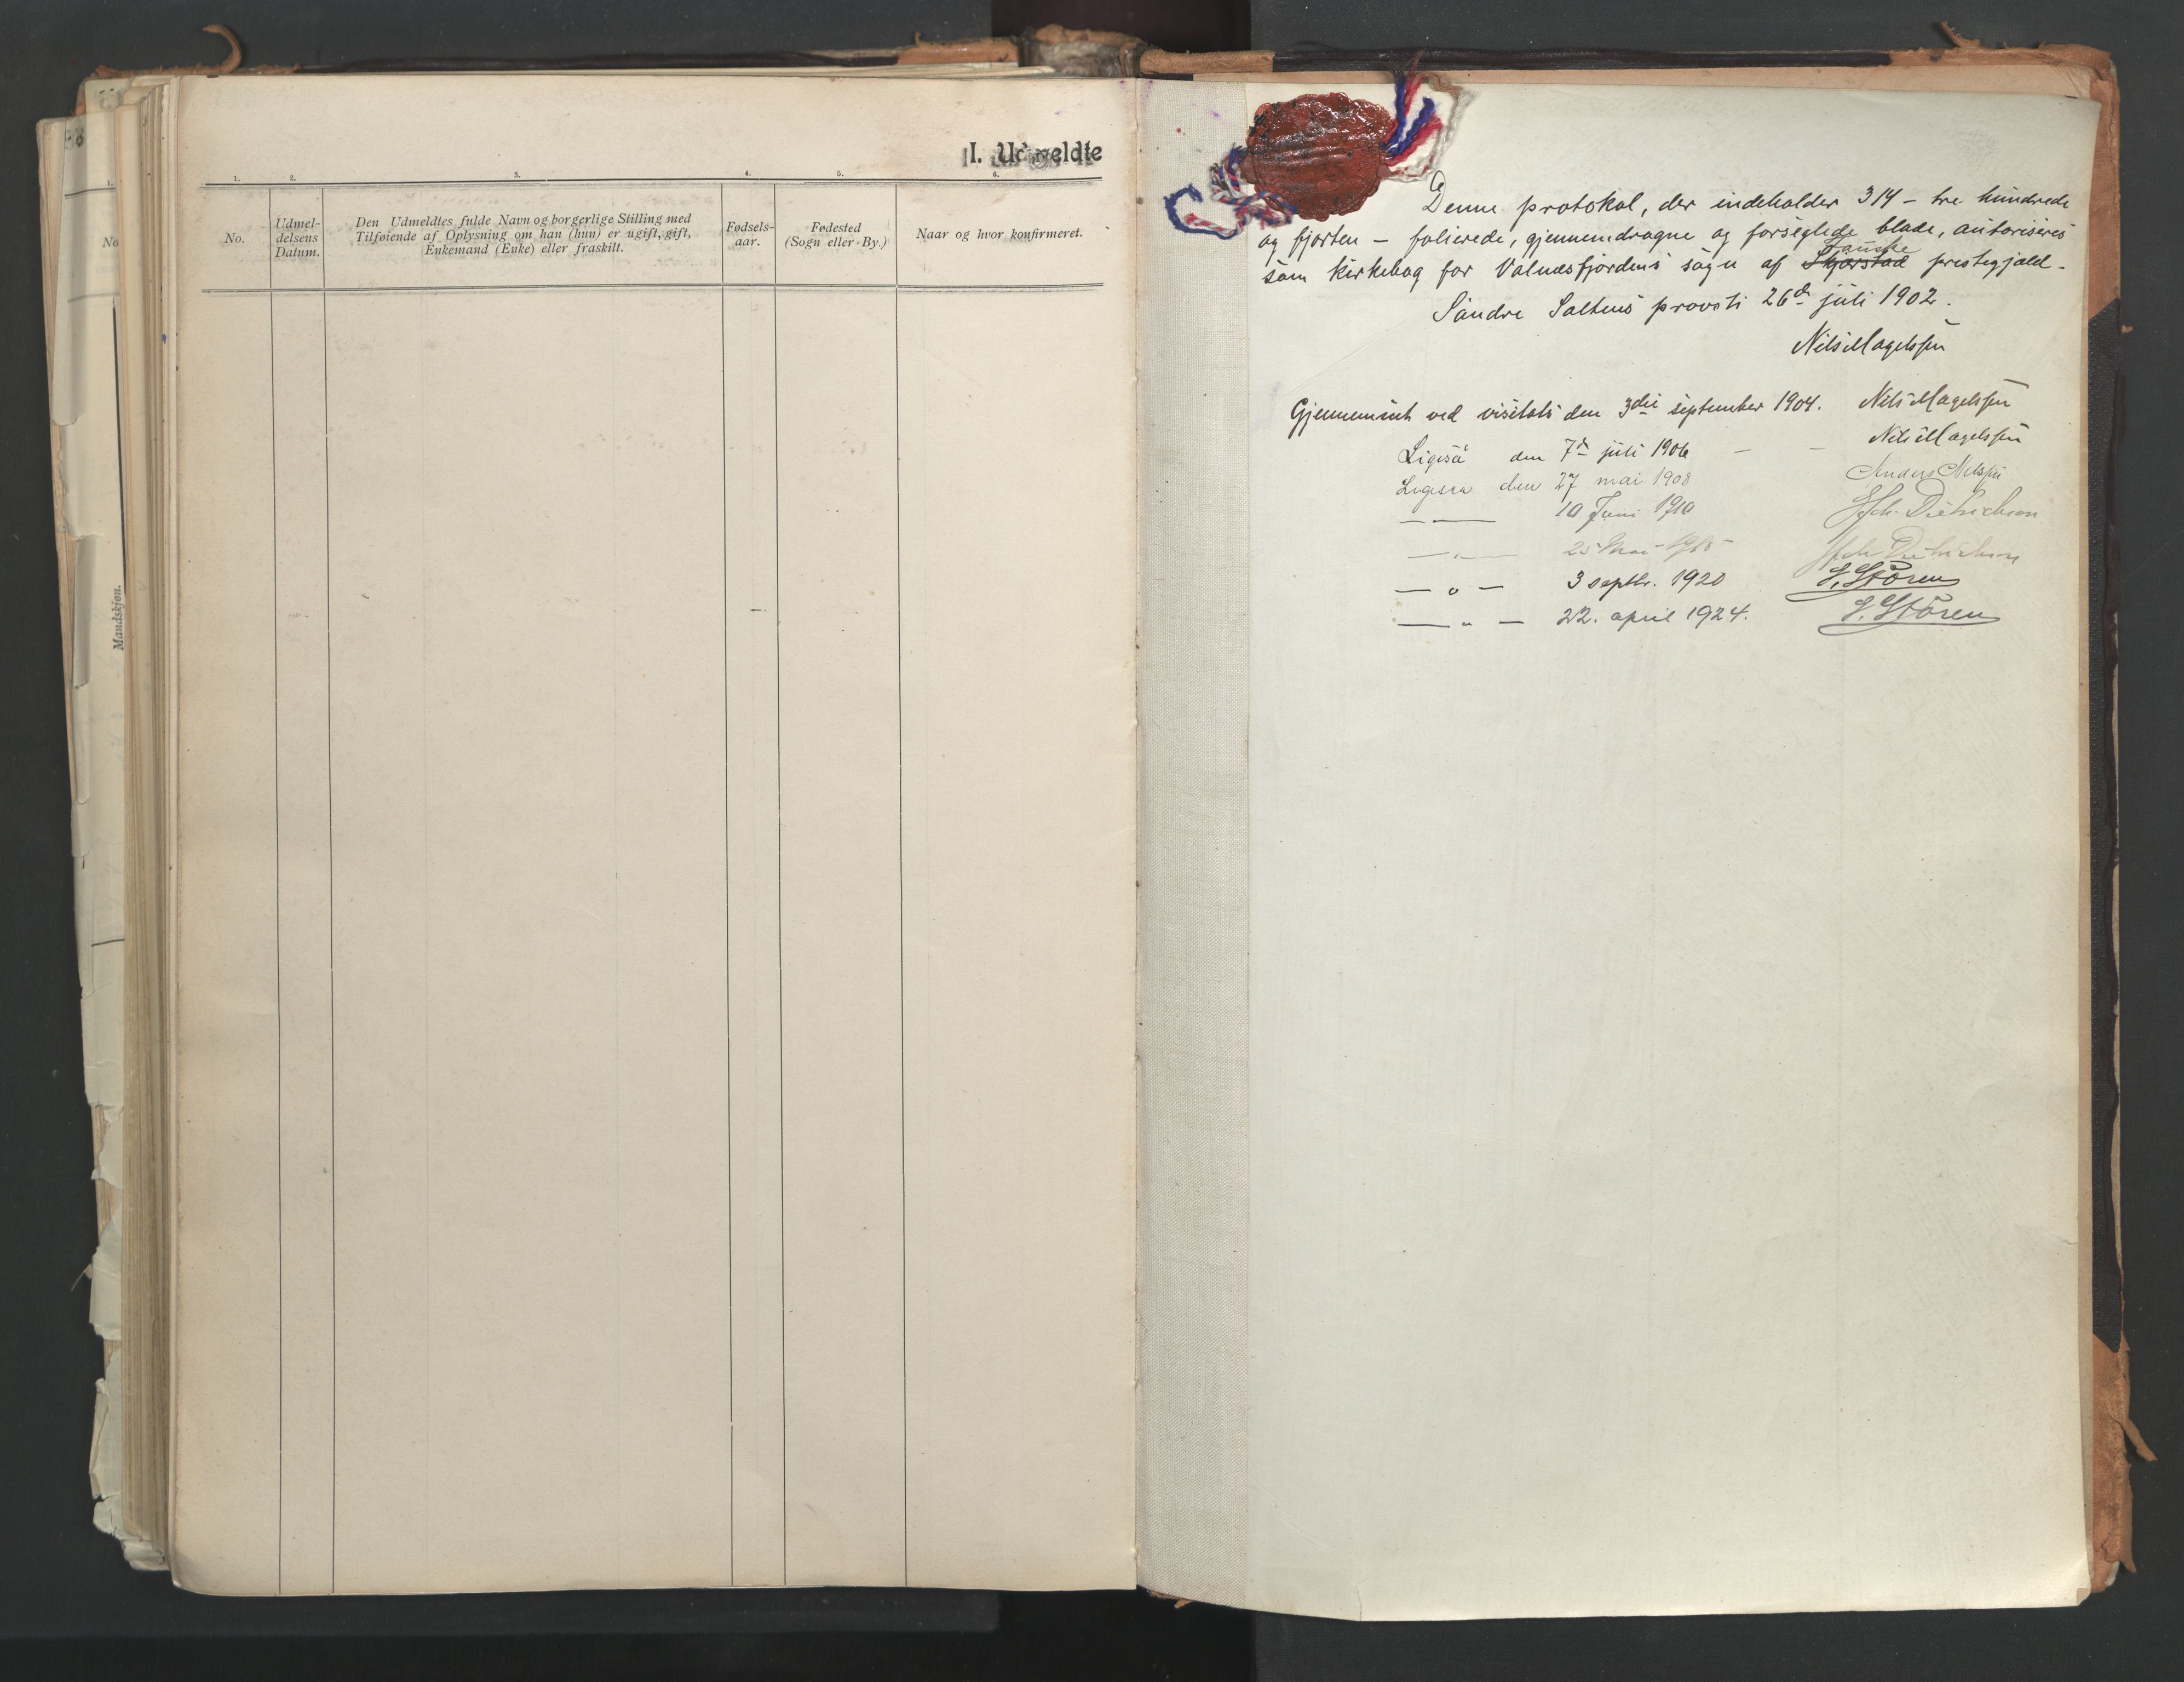 I. Udmeldte
1. 2. 3. 4. 5. 6.
No.
Udmel-
delsens
Datum.
Den Udmeldtes fulde Navn og borgerlige Stilling med
Tilføiende af Oplysning om han (hun) er ugift, gift,
Enkemand (Enke) eller fraskilt.
Fødsels-
aar.
Fødested
(Sogn eller By.)
Naar og hvor konfirmeret.
No
Mandskjøn.
Denne protokol, der indeholder 314 - tre hundrede
og fjorten - folierede, gjennemdragne og forseglede blade, autoriseres
Fauske
som kirkebog for Valnesfjordens sogn af Skjerstad prestegjæld.
Søndre Saltens provsti 26d juli 1902.
Nils Magelssen
Gjennemseet ved visitats den 3die september 1904. Nils Magelssen
Ligesaa den 7d juli 1906 - - Nils Magelssen
Ligesaa den 27 mai 1908 Anders Nilssen
— — 10 Juni 1910 Dietrichson
— „ — 25 Mai 1915 Dietrichson
— o — 3 septbr. 1920 J. Støren
— „ — 22. april 1924. J. Støren